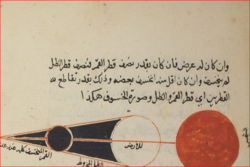 وان كان له عرض فان كان بقدر نصف قطر القمر ونصف قطر الظل
لم ينخسف وان كان اقل منه انخسف بعضه وذلك بقدر تقاطع
القطرين اي قطر القمر والظل وصورة الخسوف هكذا
الارض